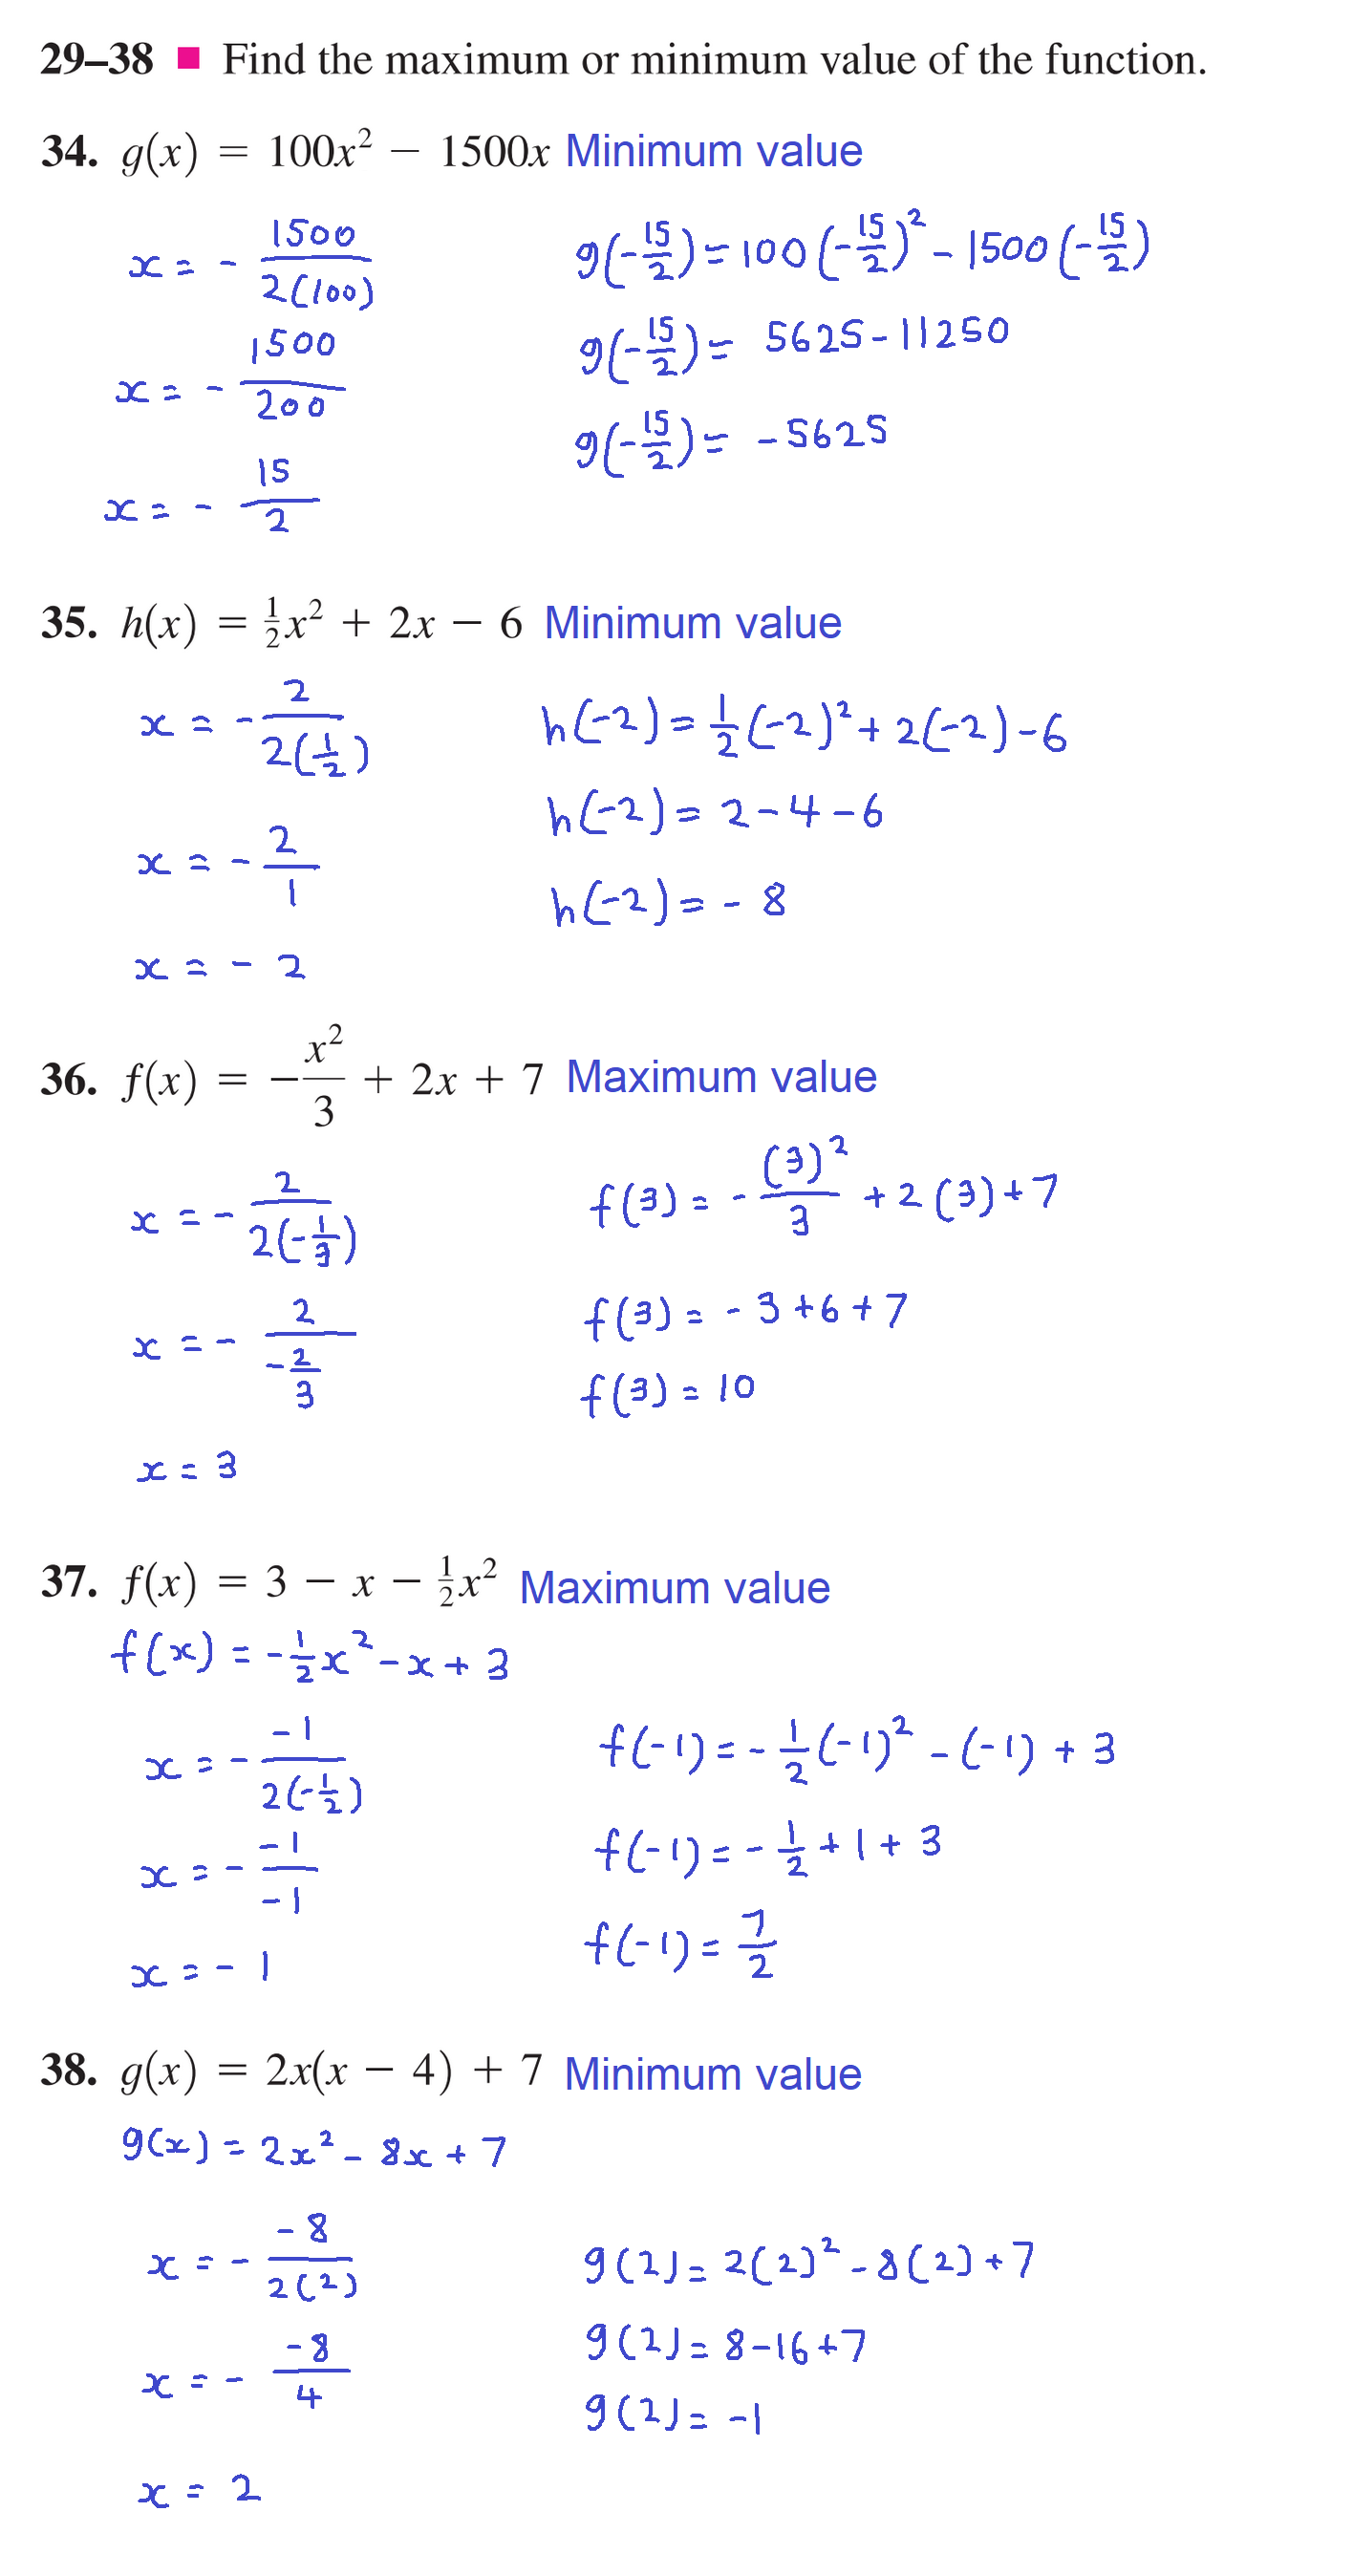 29–38 ■ Find the maximum or minimum value of the function.
34. g(x) = 100x² − 1500x Minimum value
x = - 1500/2(100)
g(-15/2) = 100(-15/2)² - 1500(-15/2)
x = - 1500/200
g(-15/2) = 5625 - 11250
x = - 15/2
g(-15/2) = -5625
35. h(x) = ½x² + 2x − 6 Minimum value
x = - 2/2(1/2)
h(-2) = 1/2(-2)² + 2(-2) - 6
x = - 2/1
h(-2) = 2 - 4 - 6
x = - 2
h(-2) = - 8
36. f(x) = −x²/3 + 2x + 7 Maximum value
x = - 2/2(-1/3)
f(3) = - (3)²/3 + 2(3) + 7
x = - 2/-2/3
f(3) = - 3 + 6 + 7
x = 3
f(3) = 10
37. f(x) = 3 − x − ½x² Maximum value
f(x) = -1/2x² - x + 3
x = - -1/2(-1/2)
f(-1) = - 1/2(-1)² - (-1) + 3
x = - -1/-1
f(-1) = - 1/2 + 1 + 3
x = - 1
f(-1) = 7/2
38. g(x) = 2x(x − 4) + 7 Minimum value
g(x) = 2x² - 8x + 7
x = - -8/2(2)
g(2) = 2(2)² - 8(2) + 7
x = - -8/4
g(2) = 8 - 16 + 7
x = 2
g(2) = -1